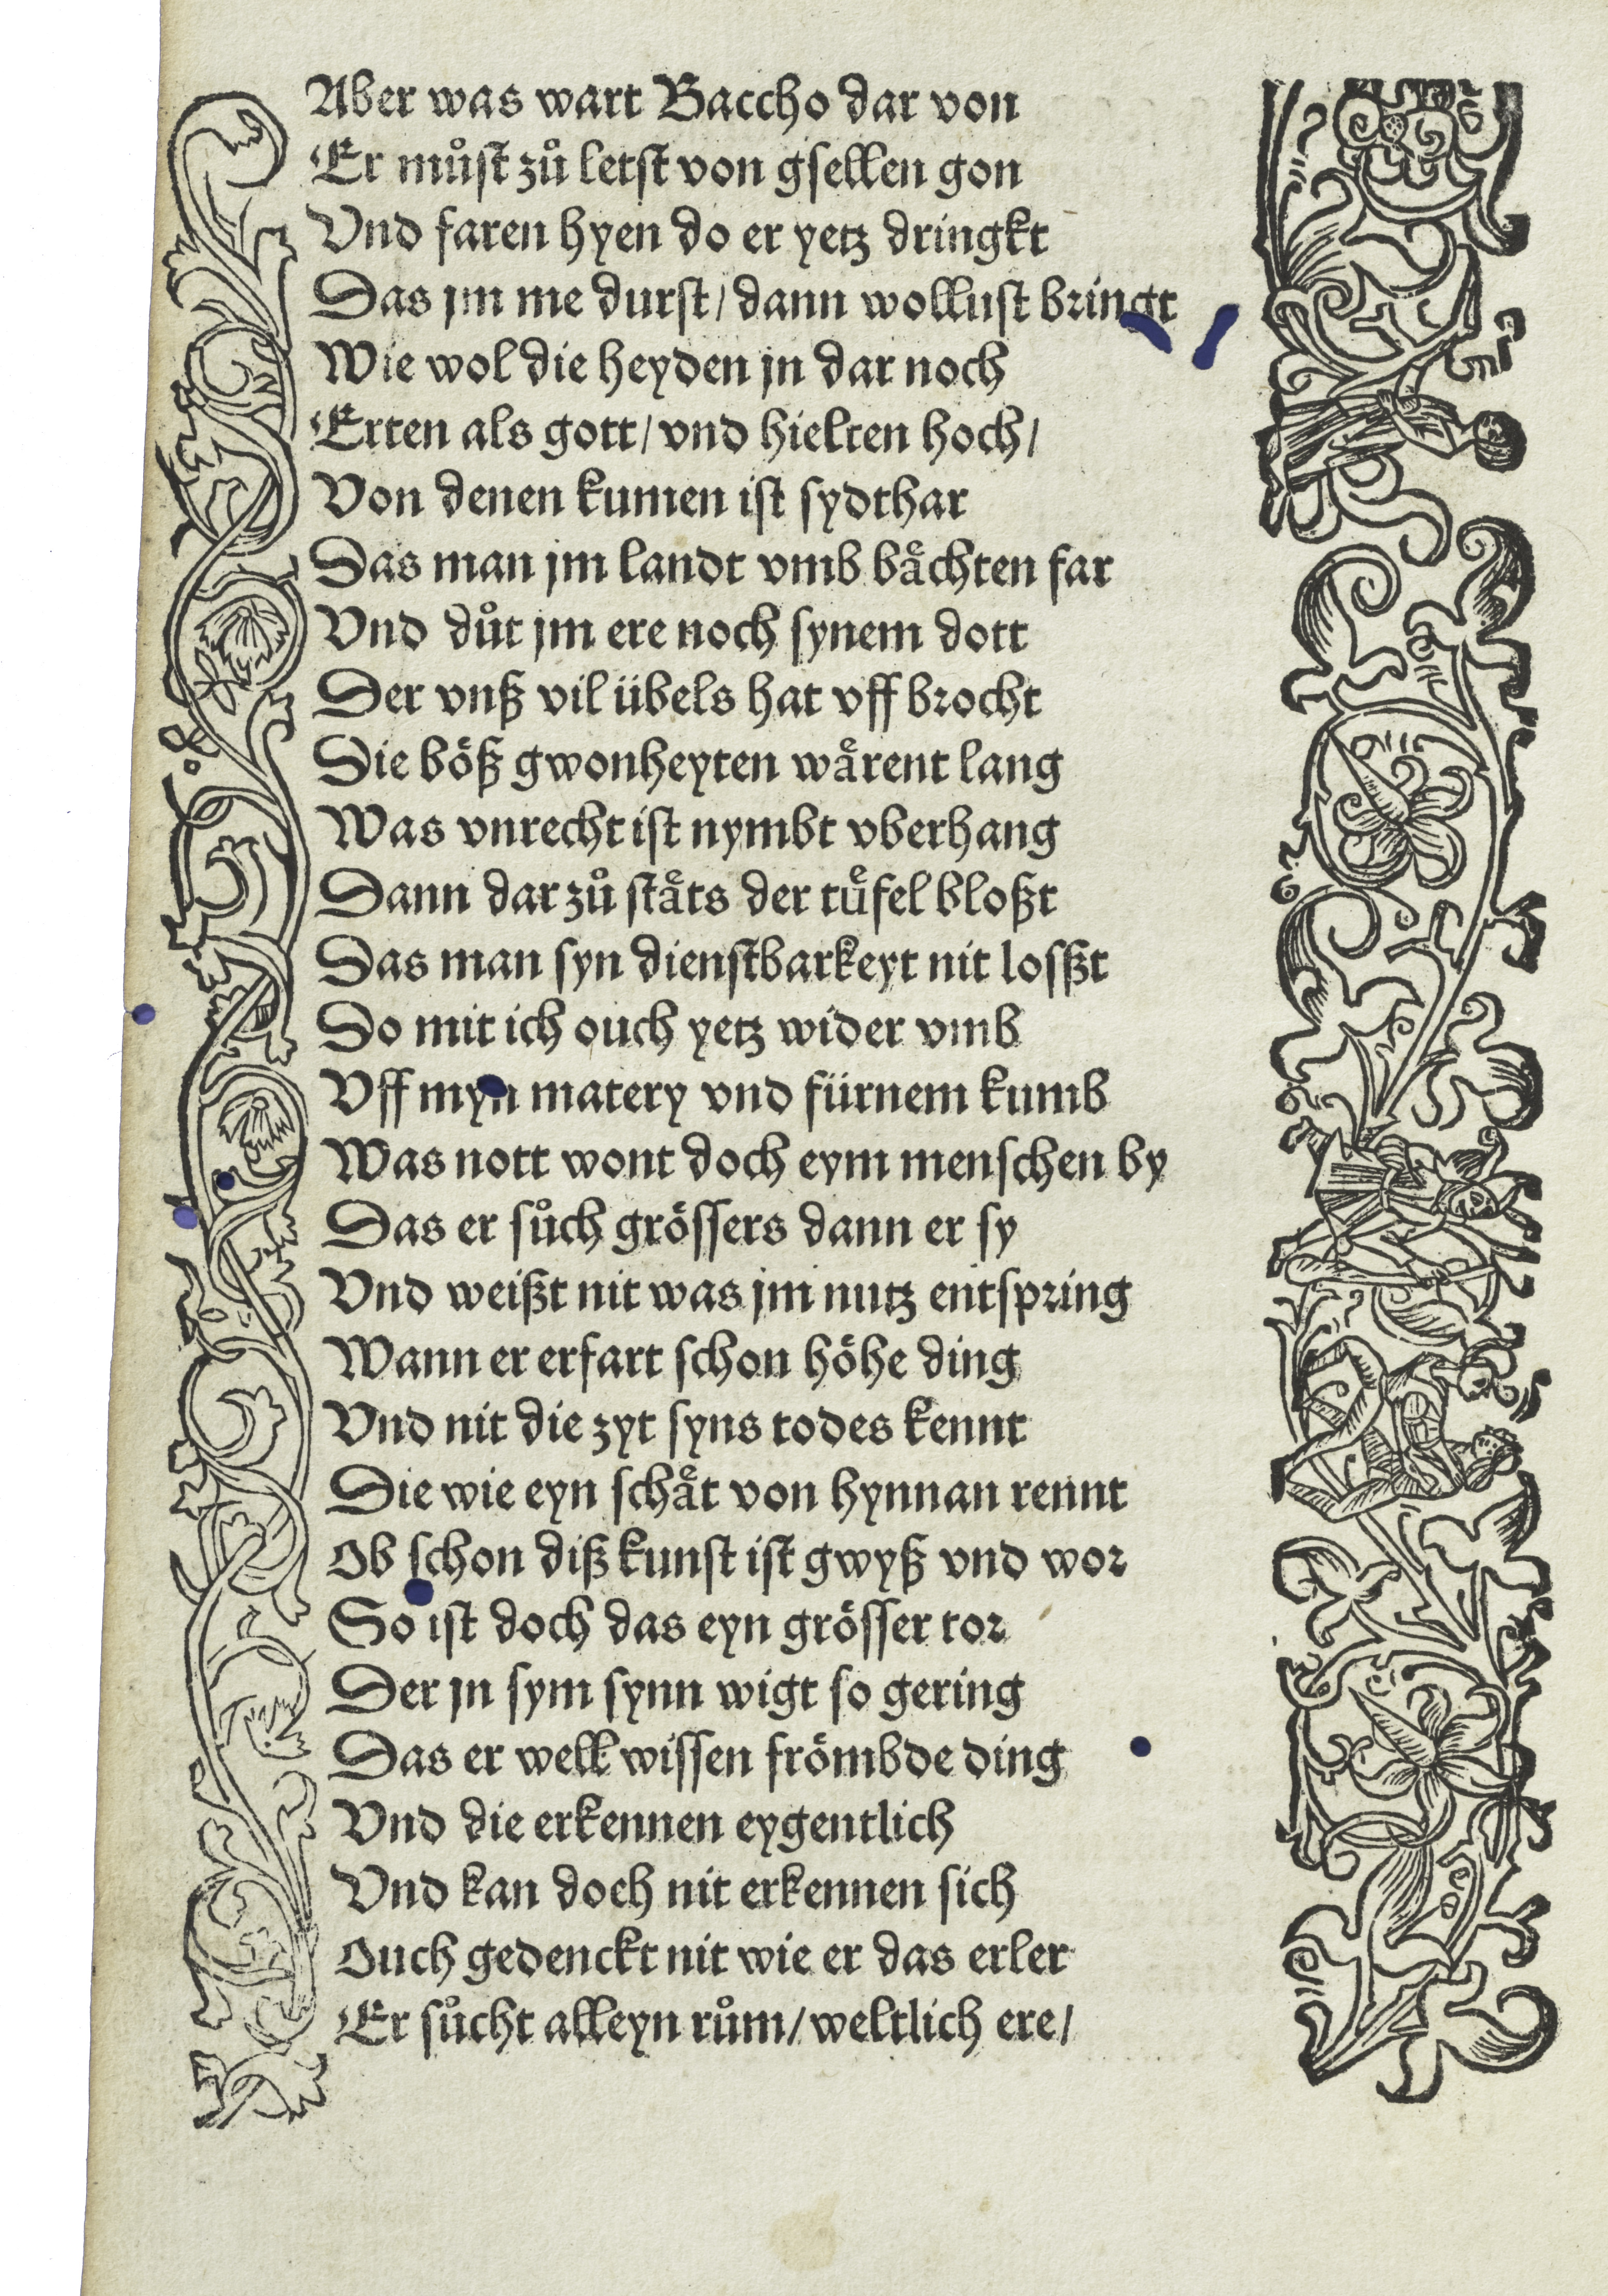 Aber was wart Baccho dar von
Er můſt zů letſt von gſellen gon
Vnd faren hyen do er yetz dringkt
Das jm me durſt / dann wolluſt bringt
Wie wol die heyden jn dar noch
Erten als gott / vnd hielten hoch /
Von denen kumen iſt ſydthar
Das man jm landt vmb baͤchten far
Vnd důt jm ere noch ſynem dott
Der vnß vil übels hat vff brocht
Die boͤß gwonheyten waͤrent lang
Was vnrecht iſt nymbt vberhang
Dann dar zů ſtaͤts der tuͤfel bloßt
Das man ſyn dienſtbarkeyt nit loſßt
Do mit ich ouch yetz wider vmb
Vff myn matery vnd fürnem kumb
Was nott wont doch eym menſchen by
Das er ſůch groͤſſers dann er ſy
Vnd weißt nit was jm nutz entſpring
Wann er erfart ſchon hoͤhe ding
Vnd nit die zyt ſyns todes kennt
Die wie eyn ſchaͤt von hynnan rennt
Ob ſchon diß kunſt iſt gwyß vnd wor
So iſt doch das eyn groͤſſer tor
Der jn ſym ſynn wigt ſo gering
Das er well wiſſen froͤmbde ding
Vnd die erkennen eygentlich
Vnd kan doch nit erkennen ſich
Ouch gedenckt nit wie er das erler
Er ſůcht alleyn rům / weltlich ere /